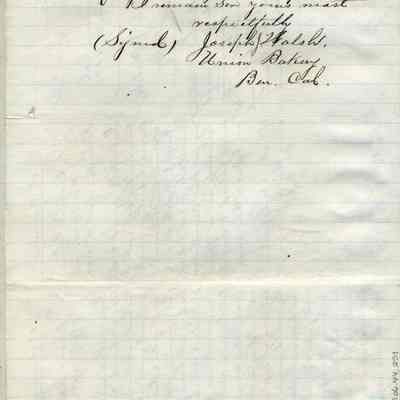 I remain Sir yours most
respectfully
(Signed) Joseph Walsh.
Union Bakery
Ben. Cal.